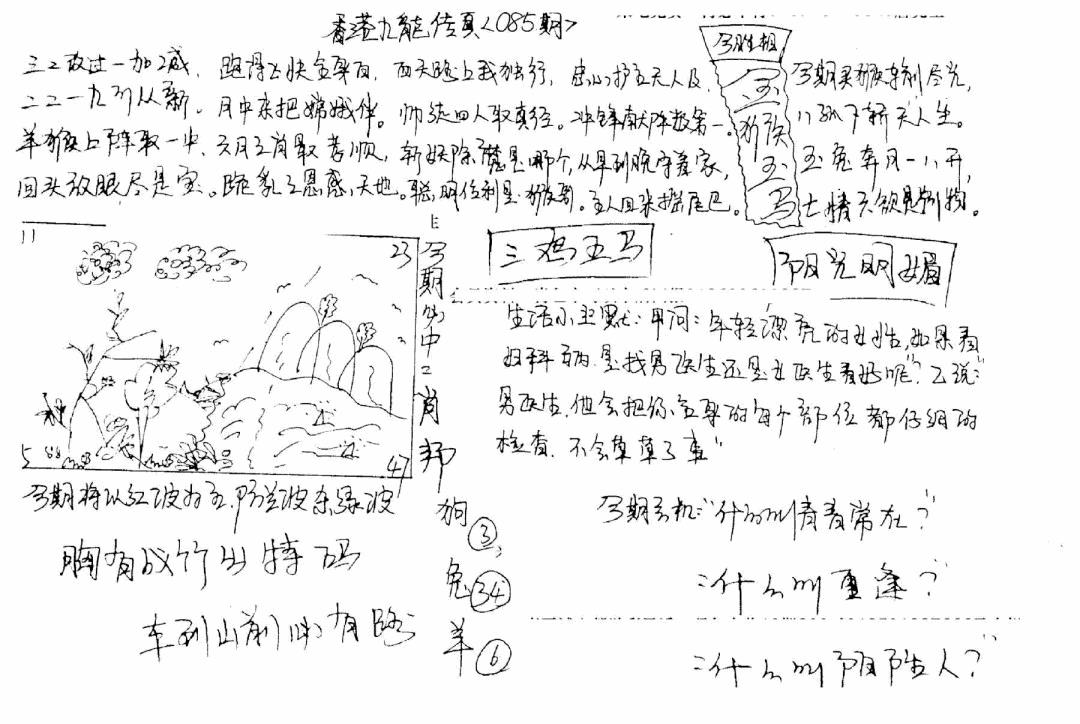 香港九龍传真<085期>
三二改过一加减，跑得飞快全身白，西天路上我独行，忠心护主无人及，
二二一九引从新。月中来把嫦娥伴。师徒四人取真经。冲锋献阵数第一。
羊猴上阵取一中，六月三肖最孝顺，斩妖除魔是哪个，从早到晚守着家，
回头放眼尽是宝。跪乳之恩感天地。聪明伶利是猴哥。主人回来摇尾巴。
今胜相
玉
猴
玉
马
今期买猴车制尽光，
玉兔奔月一八开，
三鸡五马
阳光明媚
11
23
5
47
今期必中二肖
狗③，
兔㉞
羊⑥
生活小幽默：甲问："年轻漂亮的女性，如果看
妇科病是找男医生还是女医生看好呢？"乙说："
男医生，他会把你全身的每个部位都仔细的
检查，不会草草了事"
今期将以红波为主，防兰波杀绿波
胸有成竹出特码
车到山前必有路
今期玄机："什么叫青春常在？"
："什么叫重逢？"
："什么叫阴阳人？"